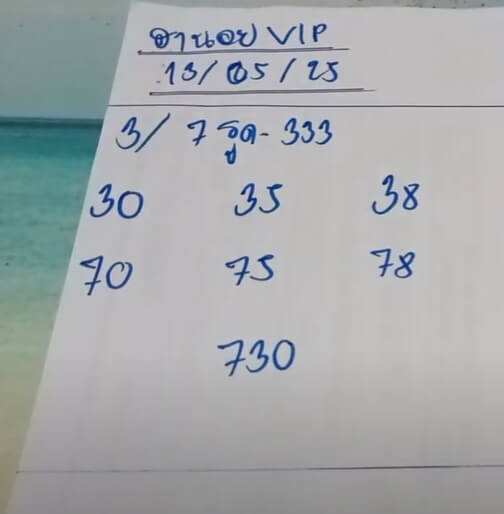 ฮานอย VIP
13/05/25
3/ 7 รูด - 333
30 35 38
70 75 78
730